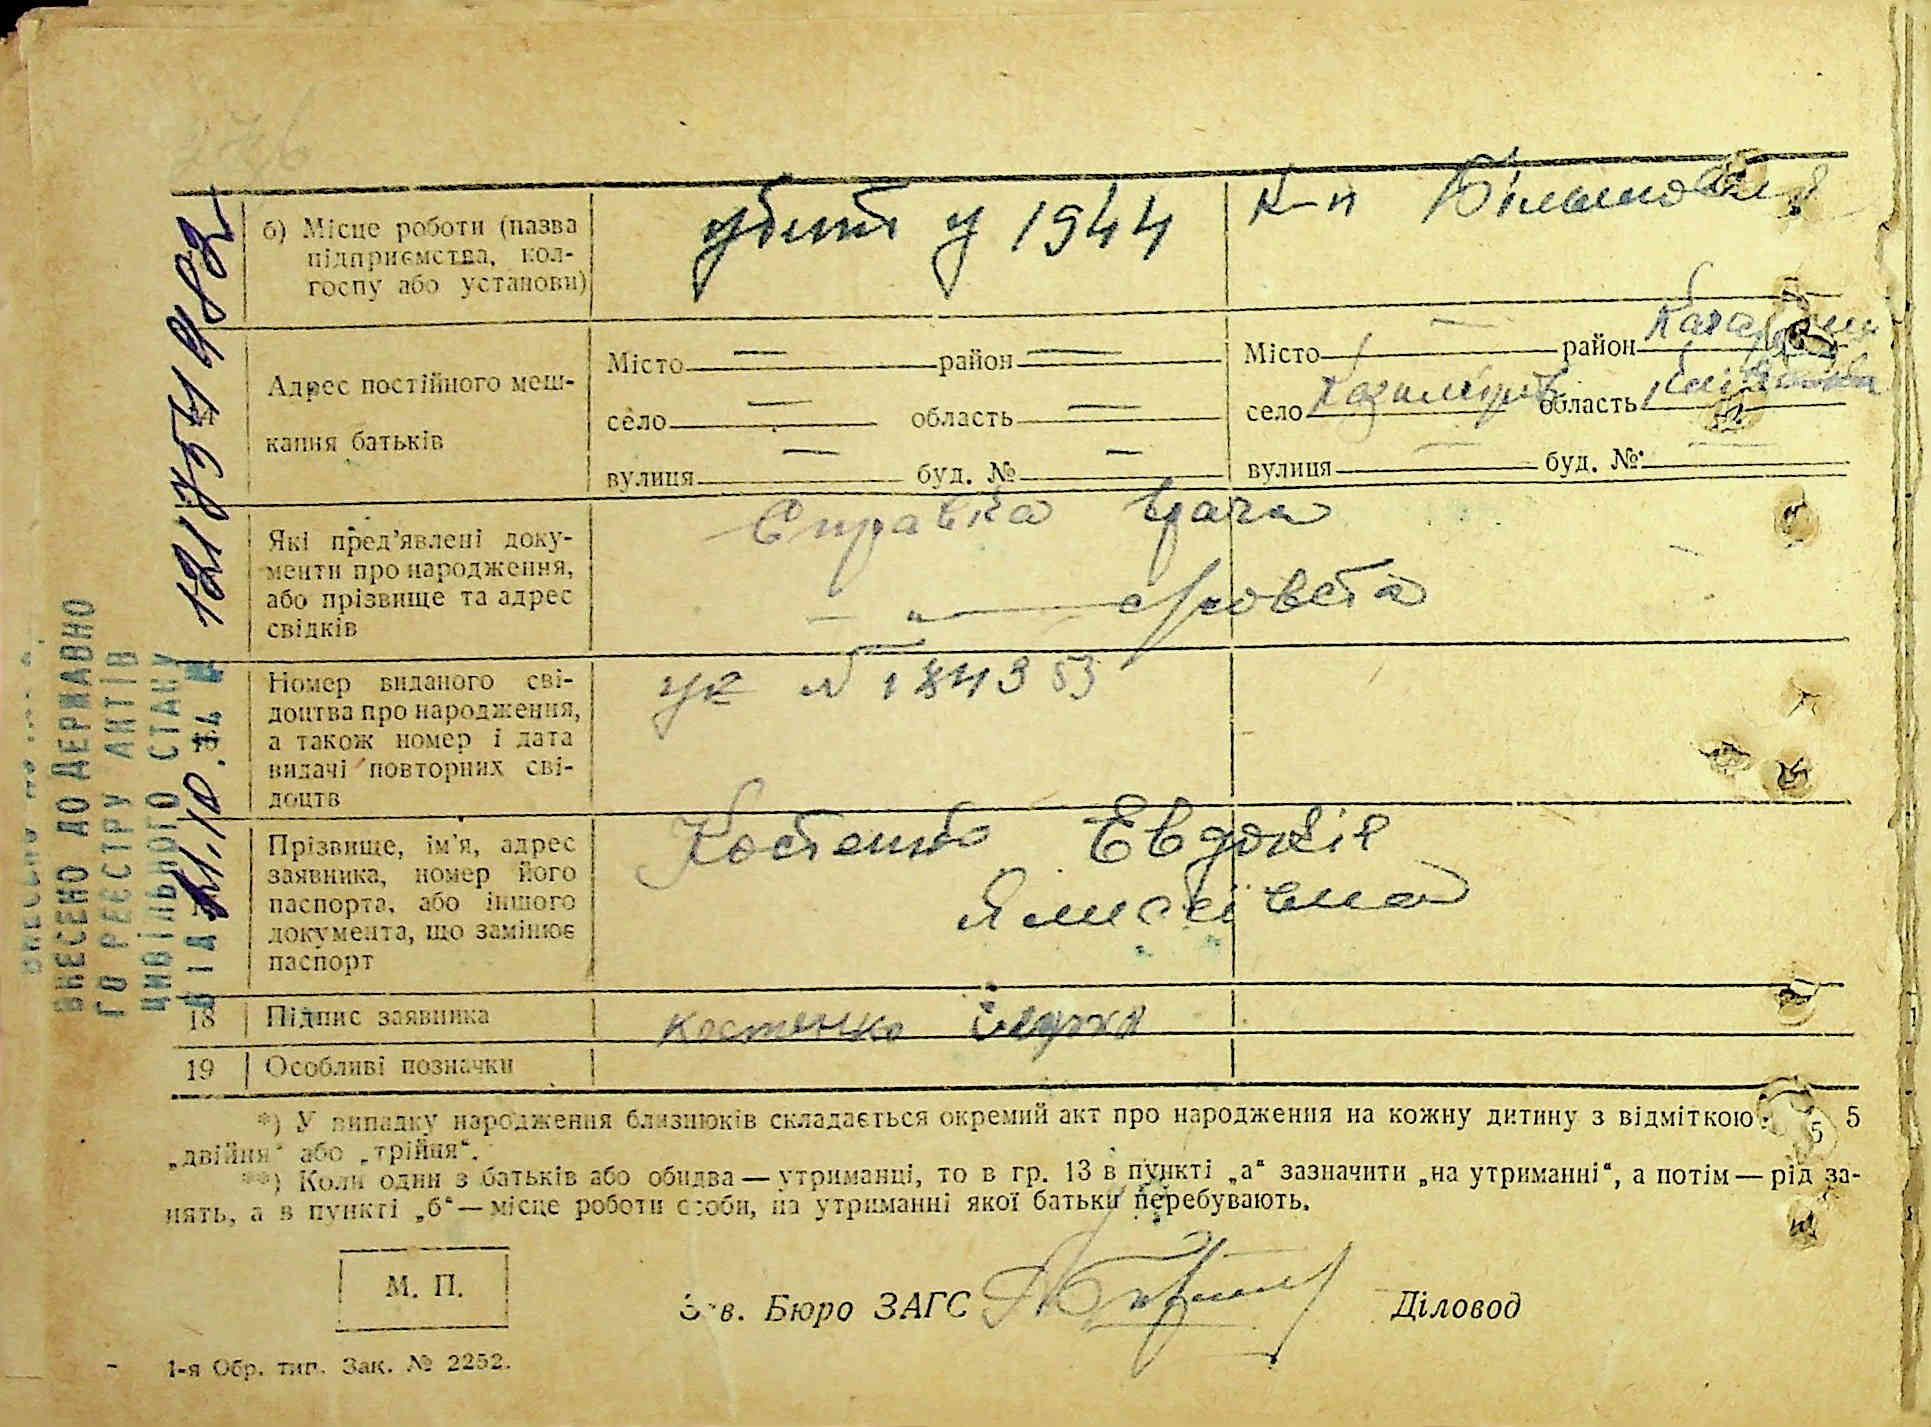 б) Місце роботи (назва
підприємства, кол-
госпу або установи)
убит у 1944
к-п Більшовик
Адрес постійного меш-
кання батьків
Місто — район —
село — область —
вулиця — буд. № —
Місто — район
село область
вулиця — буд. № —
Які пред'явлені доку-
менти про народження,
або прізвище та адрес
свідків
Справка врача
— „ — с/совета
Номер виданого сві-
доцтва про народження,
а також номер і дата
видачі повторних сві-
доцтв
УК № 184353
Прізвище, ім'я, адрес
заявника, номер його
паспорта, або іншого
документа, що замінює
паспорт
Костенко Евдокія
18 Підпис заявника
Костенко
19 Особливі позначки
*) У випадку народження близнюків складається окремий акт про народження на кожну дитину з відміткою: 5
„двійня" або „трійня".
**) Коли один з батьків або обидва — утриманці, то в гр. 13 в пункті „а" зазначити „на утриманні", а потім — рід за-
нять, а в пункті „б" — місце роботи особи, на утриманні якої батьки перебувають.
М. П.
Зав. Бюро ЗАГС
Діловод
1-я Обр. тип. Зак. № 2252.
ВНЕСЕНО ДО ДЕРЖАВНО
ГО РЕЄСТРУ АКТІВ
ЦИВІЛЬНОГО СТАНУ
ВІД